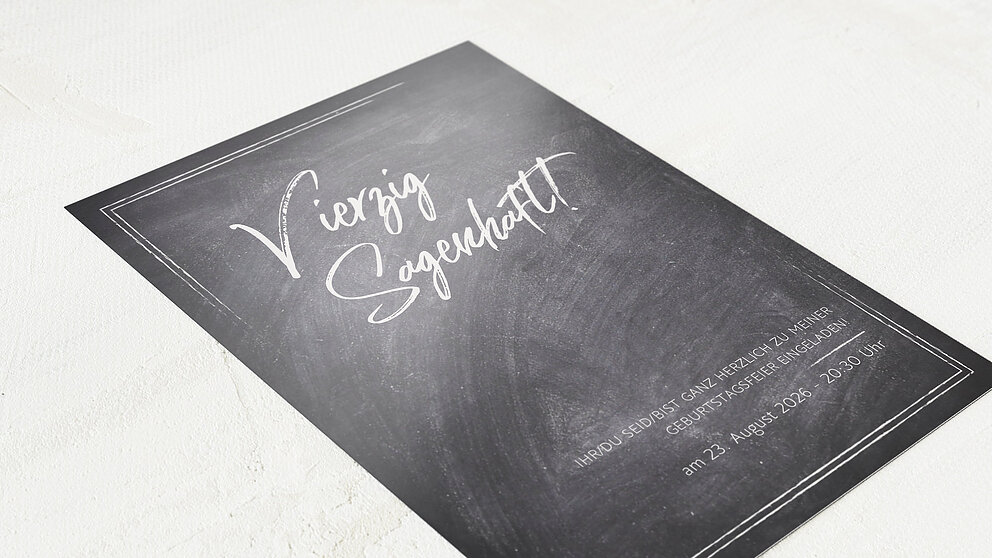 Vierzig
Sagenhaft!
IHR/DU SEID/BIST GANZ HERZLICH ZU MEINER
GEBURTSTAGSFEIER EINGELADEN!
am 23. August 2026 - 20:30 Uhr